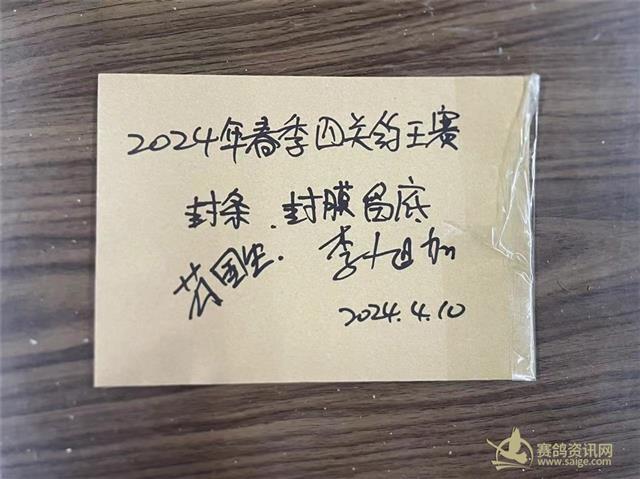 2024年春季四关鸽王赛
封条.封膜留底
国
李旭
2024.4.10
赛鸽资讯网
www.saige.com